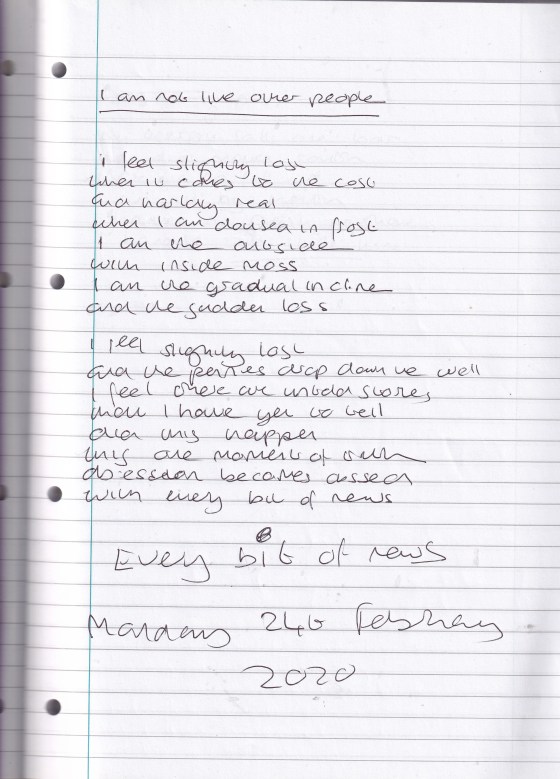 I am not like other people
I feel slightly lost
when it comes to the cost
and hardly real
when I am doused in frost
I am the outside
with inside moss
I am the gradual incline
and the sudden loss
I feel slightly lost
and the pennies drop down the well
I feel there are untold stories
which I have yet to tell
did this happen
this one moment of truth
obsession becomes
with every bit of news
Every bit of news
Monday 24th February
2020